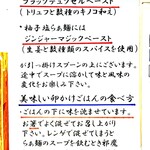 ブラックデュクセルペースト
(トリュフと数種のキノコ和え)
・柚子塩らぁ麺には
ジンジャーマジックペースト
(生姜と数種類のスパイスを使用)
が引っ掛けスプーンの上にございます。
途中でスープに溶かして味と風味の
変化をお楽しみ下さい。
美味しい卵かけごはんの食べ方
ごはんの下に味を沈ませています。
お箸でよく混ぜてお召し上がり
下さい。レンゲで混ぜてしまうと
らぁ麺のスープを飲む際に